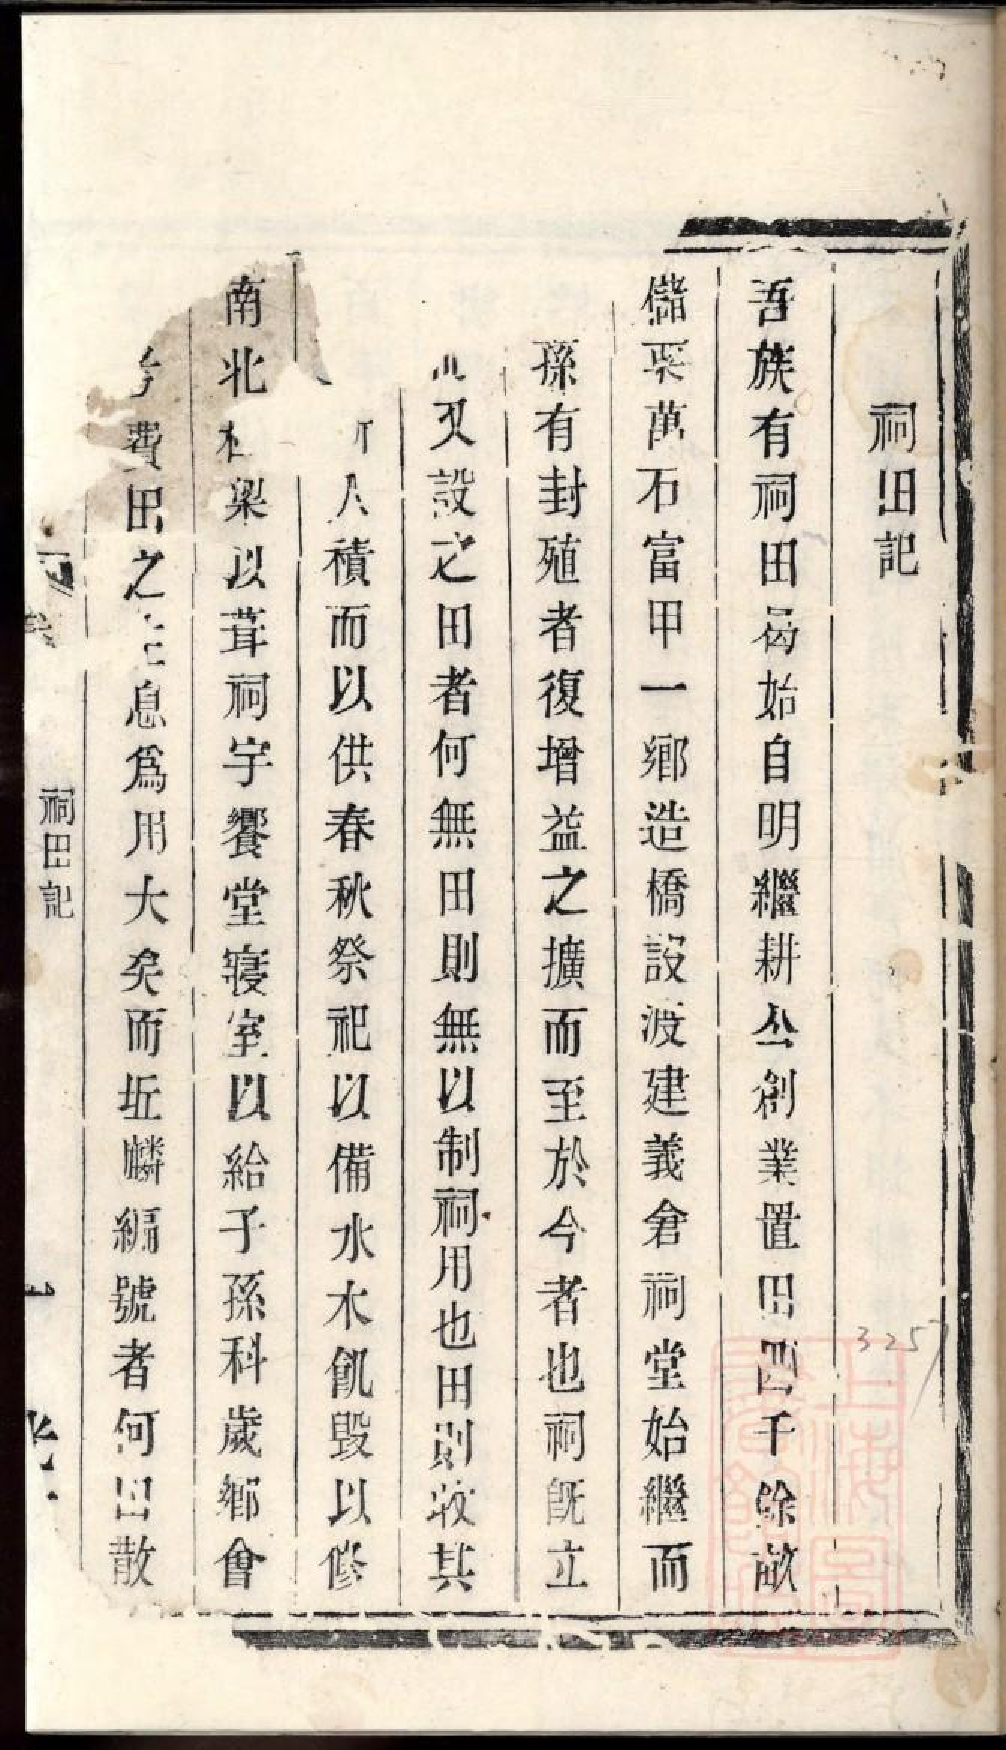 祠田記
吾族有祠田曷始自明繼耕公創業置田四千餘畝
儲粟萬石富甲一鄉造橋設渡建義倉祠堂始繼而
孫有封殖者復增益之擴而至於今者也祠旣立
又設之田者何無田則無以制祠用也田則收其
人積而以供春秋祭祀以備水木飢毀以修
南北橋梁以葺祠宇饗堂寢室以給子孫科歲鄉會
費田之生息爲用大矣而坵麟編號者何田散
祠田記
一
上海圖書館藏
3257